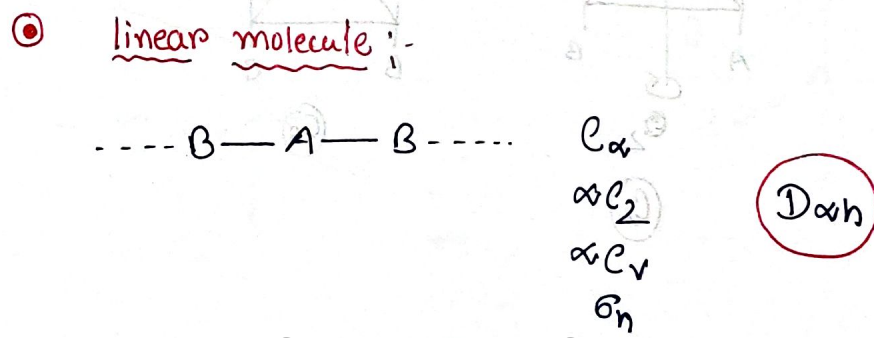 linear molecule :-
---- B — A — B ----- C∝
∝C₂
∝Cv
σh
D∝h